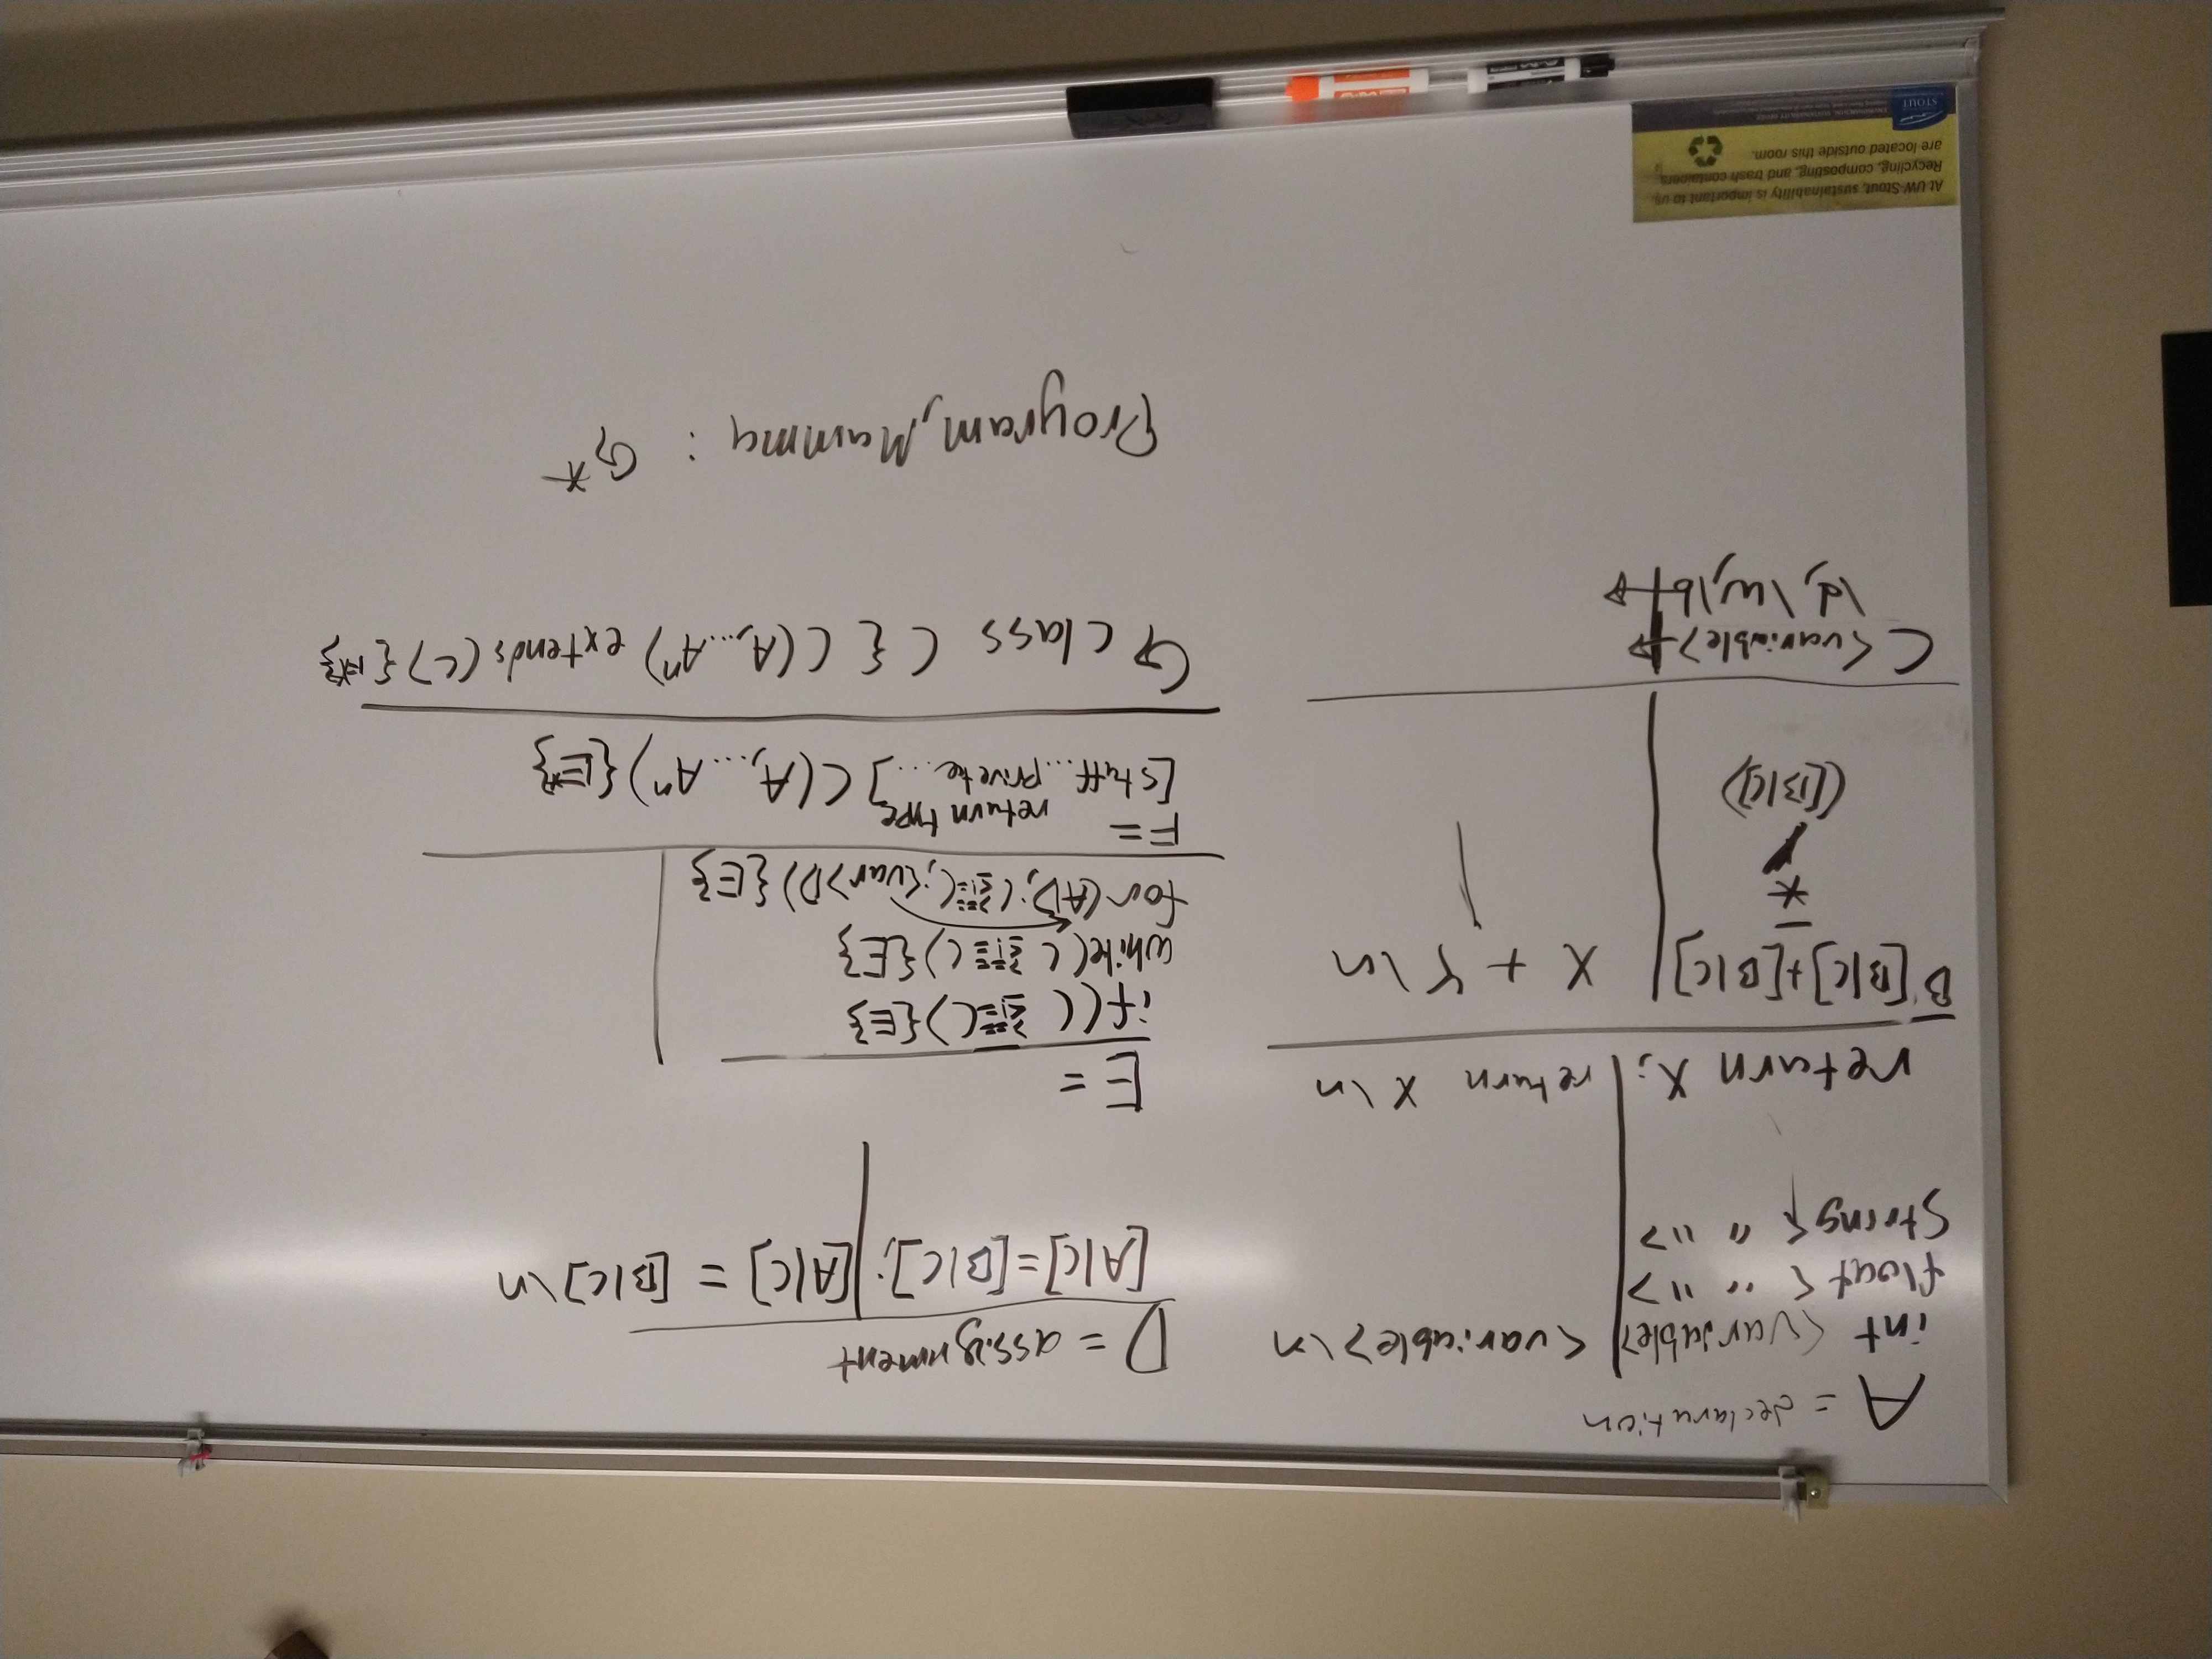 A = declaration
int <variable> | <variable> \n
float < " " >
String < " " >
return X; | return X \n
B [B|C]+[B|C] | X + Y \n
-
*
/
([B|C])
C <variable>
\d, \w, \b
D = assignment
[A|C]=[B|C]; | [A|C] = [B|C] \n
E =
if(C C){E}
while(C C){E}
for(AD; C C; <var>D){E}
F =
return type
[stuff... private ...] C(A,...Aⁿ){E*}
G class C { C(A,...Aⁿ) extends (C) {F*}
Program, Mamma : G*
At UW-Stout, sustainability is important to us.
Recycling, composting, and trash containers
are located outside this room.
STOUT
ENVIRONMENTAL SUSTAINABILITY OFFICE